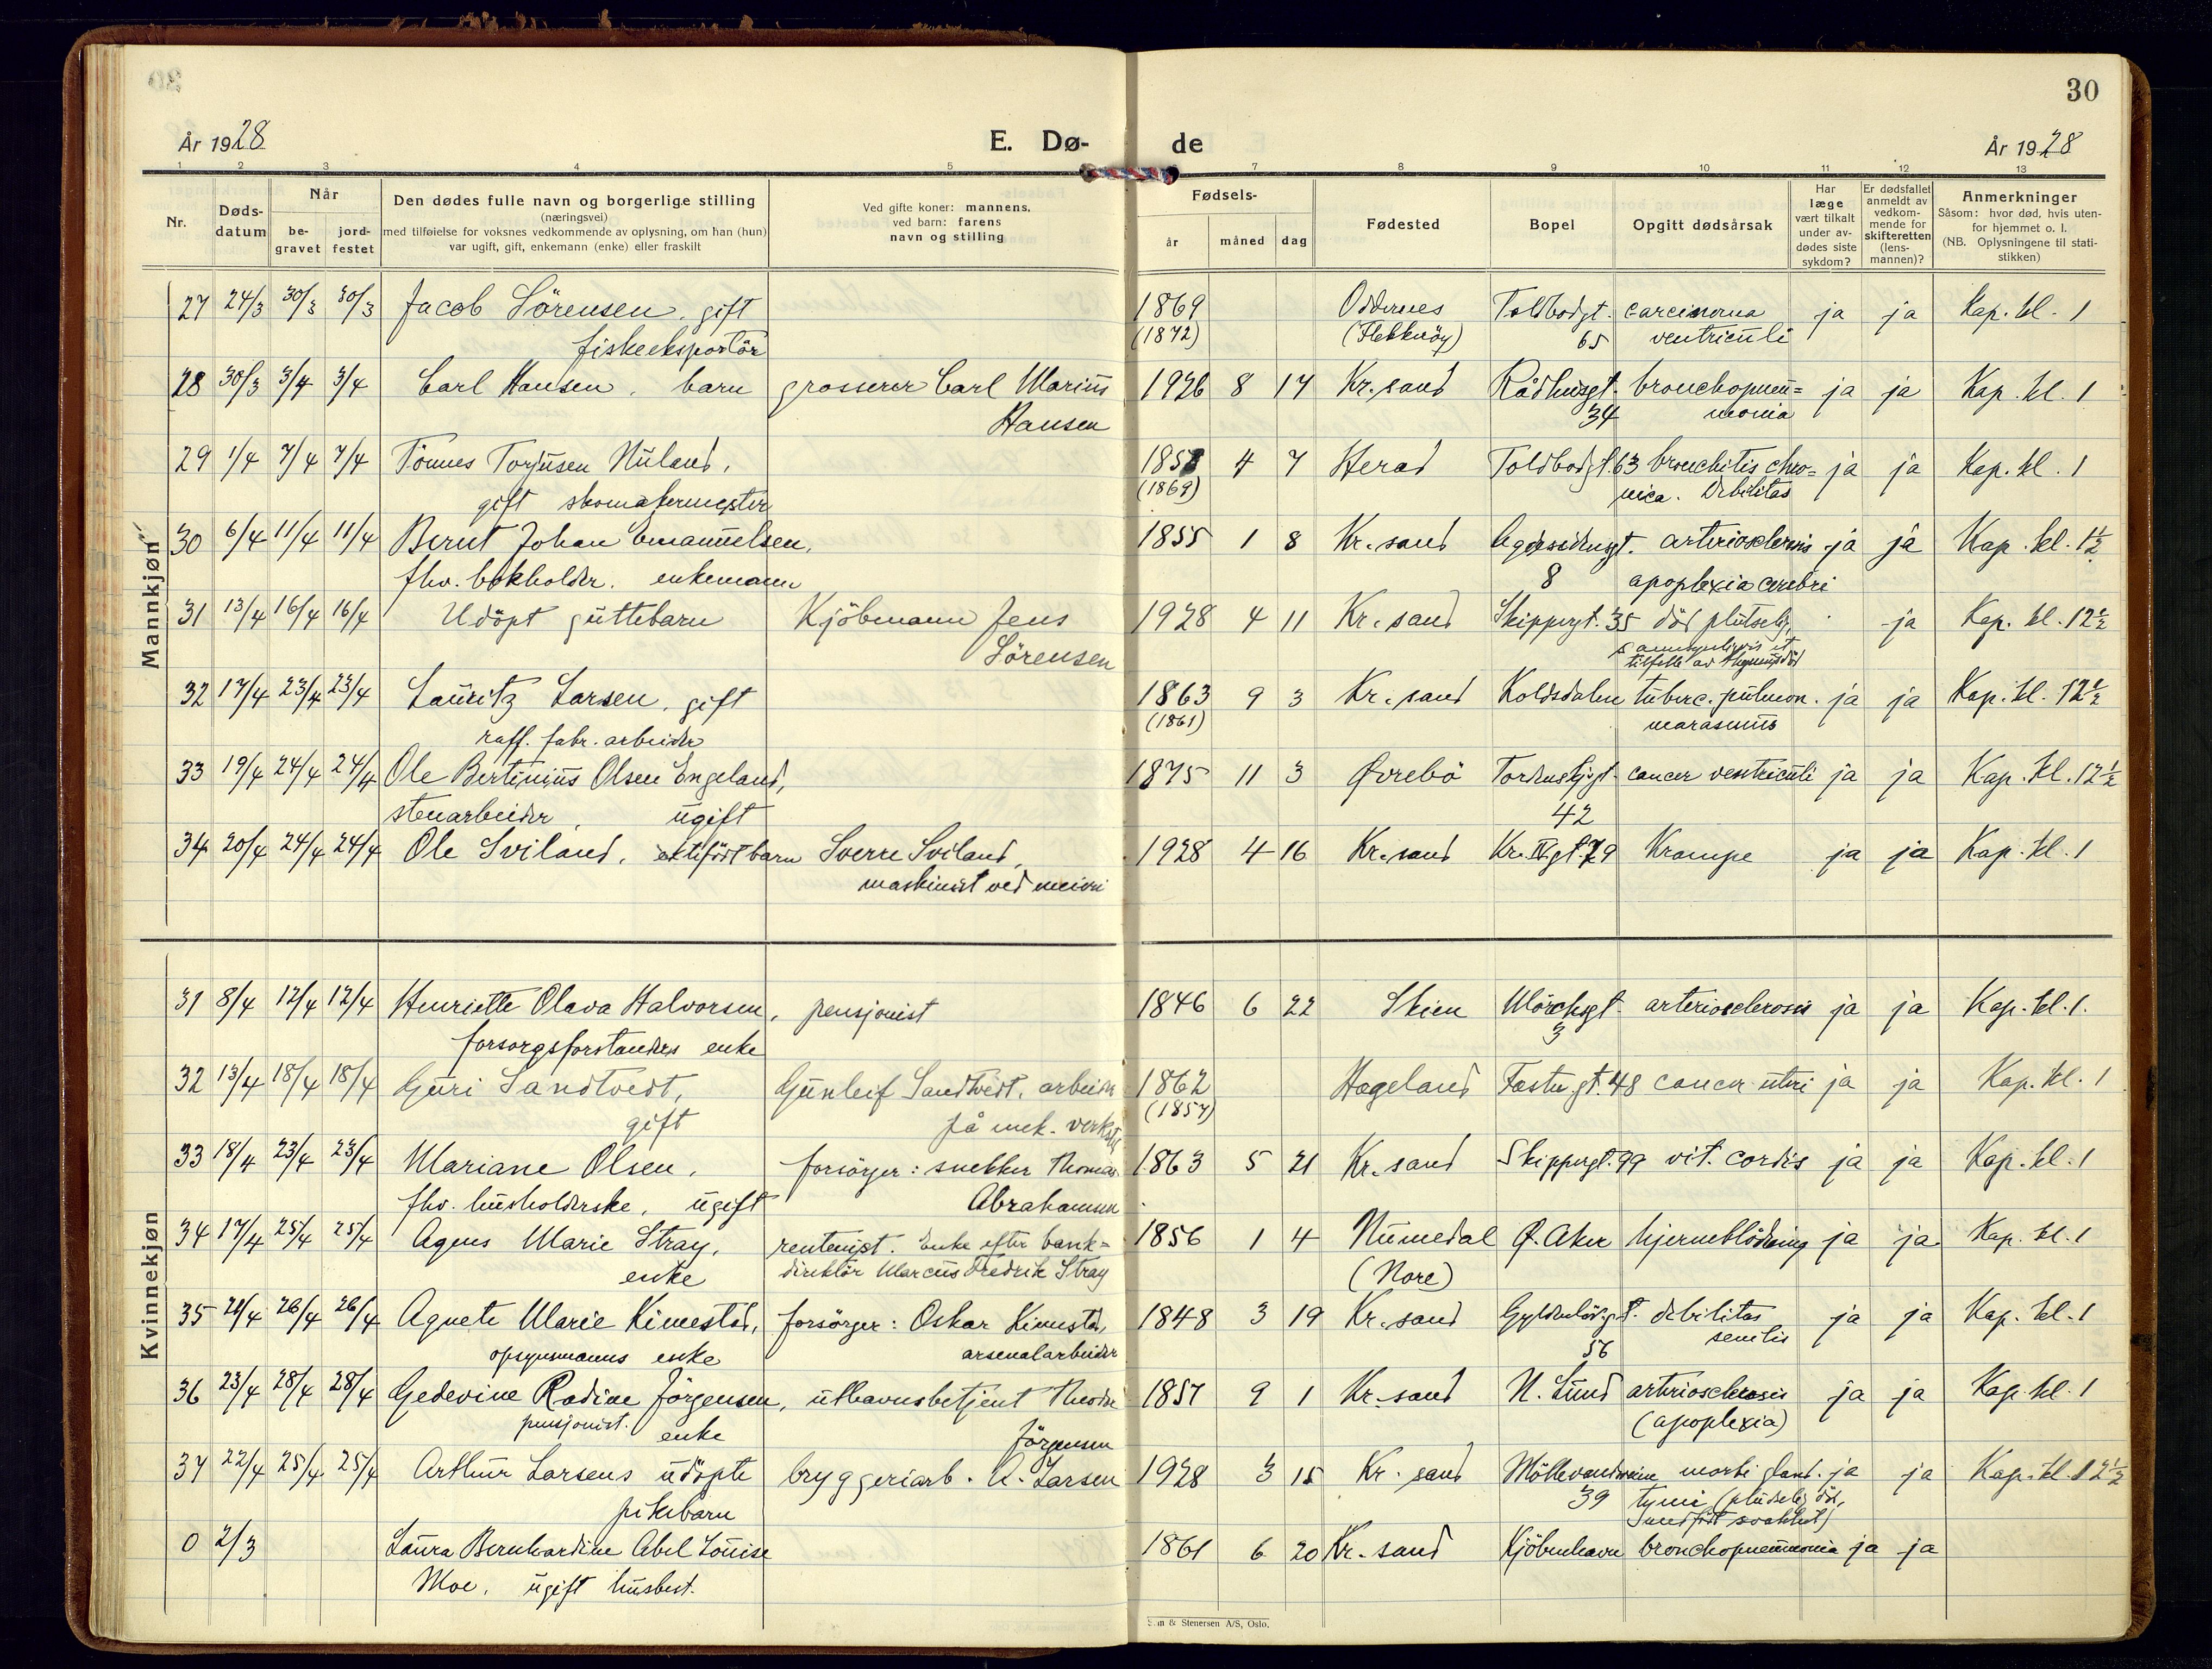 30
År 1928 E. Dø- de År 1928
1 2 3 4 5 6 7 8 9 10 11 12 13
Nr.
Døds-
datum
Når
be-
gravet
jord-
festet
Den dødes fulle navn og borgerlige stilling
(næringsvei)
med tilføielse for voksnes vedkommende av oplysning, om han (hun)
var ugift, gift, enkemann (enke) eller fraskilt
Ved gifte koner: mannens,
ved barn: farens
navn og stilling
Fødsels-
år måned dag
Fødested
Bopel
Opgitt dødsårsak
Har
læge
vært tilkalt
under av-
dødes siste
sykdom?
Er dødsfallet
anmeldt av
vedkom-
mende for
skifteretten
(lens-
mannen)?
Anmerkninger
Såsom: hvor død, hvis uten-
for hjemmet o. l.
(NB. Oplysningene til stati-
stikken)
Mannkjøn
27 24/3 30/3 30/3 Jacob Sörensen, gift 1869 Oddernes Toldbodgt. carcinoma ja ja Kap. kl. 1
fiskeeksportör (1872) (Flekkeröy) 65 ventriculi
28 30/3 3/4 3/4 Carl Hansen, barn grosserer Carl Marius 1926 8 17 Kr.sand Rådhusgt. bronchopneu= ja ja Kap. kl. 1
Hansen 34 monia
29 1/4 7/4 7/4 Tönnes Torjusen Nuland, 1858 4 7 Herad Toldbodgt. 63 bronchitis chro= ja ja Kap. kl. 1
gift skomakermester (1869) nica. Debilitas
30 6/4 11/4 11/4 Bernt Johan Emanuelsen, 1855 1 8 Kr.sand arteriosclerosis ja ja Kap. kl. 1½
fhv. bokholder. enkemann 8 apoplexia cerebri
31 13/4 16/4 16/4 Udöpt guttebarn Kjöbmann Jens 1928 4 11 Kr.sand Skippergt. 35 död plutselig, ja Kap. kl. 12½
Sörensen et
tilfelle av thymusdöd
32 17/4 23/4 23/4 Lauritz Larsen, gift 1863 9 3 Kr.sand Koldsdalen tuberc. pulmon. ja ja Kap. kl. 12½
raff. fabr. arbeider (1861) marasmus
33 19/4 24/4 24/4 Ole Bertinius Olsen Engeland, 1875 11 3 Øvrebö Tordenskjgt. cancer ventriculi ja ja Kap. kl. 12½
stenarbeider, ugift 42
34 20/4 24/4 24/4 Ole Sviland, ektefödt barn Sverre Sviland, 1928 4 16 Kr.sand Kr. IVgt. 79 Krampe ja ja Kap. kl. 1
maskinist ved meieri
Kvinnekjøn
31 8/4 12/4 12/4 Henriette Olava Halvorsen, pensjonist 1846 6 22 Skien Mörchsgt. arteriosclerosis ja ja Kap. kl. 1.
forsorgsforstanders enke 3
32 13/4 18/4 18/4 Guri Sandtvedt, Gunleif Sandtvedt, arbeider 1862 Hægeland Festn.gt. 48 cancer uteri ja ja Kap. kl. 1
gift på mek. verksted (1857)
33 18/4 23/4 23/4 Mariane Olsen, forsörger: snekker Thomas 1863 5 21 Kr.sand Skippergt. 99 vit. cordis ja ja Kap. kl. 1
fhv. husholderske, ugift Abrahamsen
34 17/4 25/4 25/4 Agnes Marie Stray, rentenist. Enke efter bank= 1856 1 4 Numedal Ø. Aker hjerneblödning ja ja Kap. kl. 1
enke direktör Marcus Fredrik Stray (Nore)
35 21/4 26/4 26/4 Agnete Marie Kimestad, forsörger: Oskar Kimestad, 1848 3 19 Kr.sand Gyldenlövsgt. debilitas ja ja Kap. kl. 1
opsynsmanns enke arsenalarbeider 56 senilis
36 23/4 28/4 28/4 Gedevine Rodine Jörgensen, uthavnsbetjent Theodor 1857 9 1 Kr.sand N. Lund arteriosclerosis ja ja Kap. kl. 1
pensjonist. enke Jörgensen (apoplexia)
37 22/4 25/4 25/4 Arthur Larsens udöpte bryggeriarb. A. Larsen 1928 3 15 Kr.sand Möllevandsveien morbi gland. ja ja Kap. kl. 12½
pikebarn 39 tymi (pludselig död,
medfödt svakhet)
0 2/3 Laura Bernhardine Abel Louise 1861 6 20 Kr.sand Kjöbenhavn bronchopneumonia ja ja
Moe, ugift husbest.
& Stenersen A/S, Oslo.